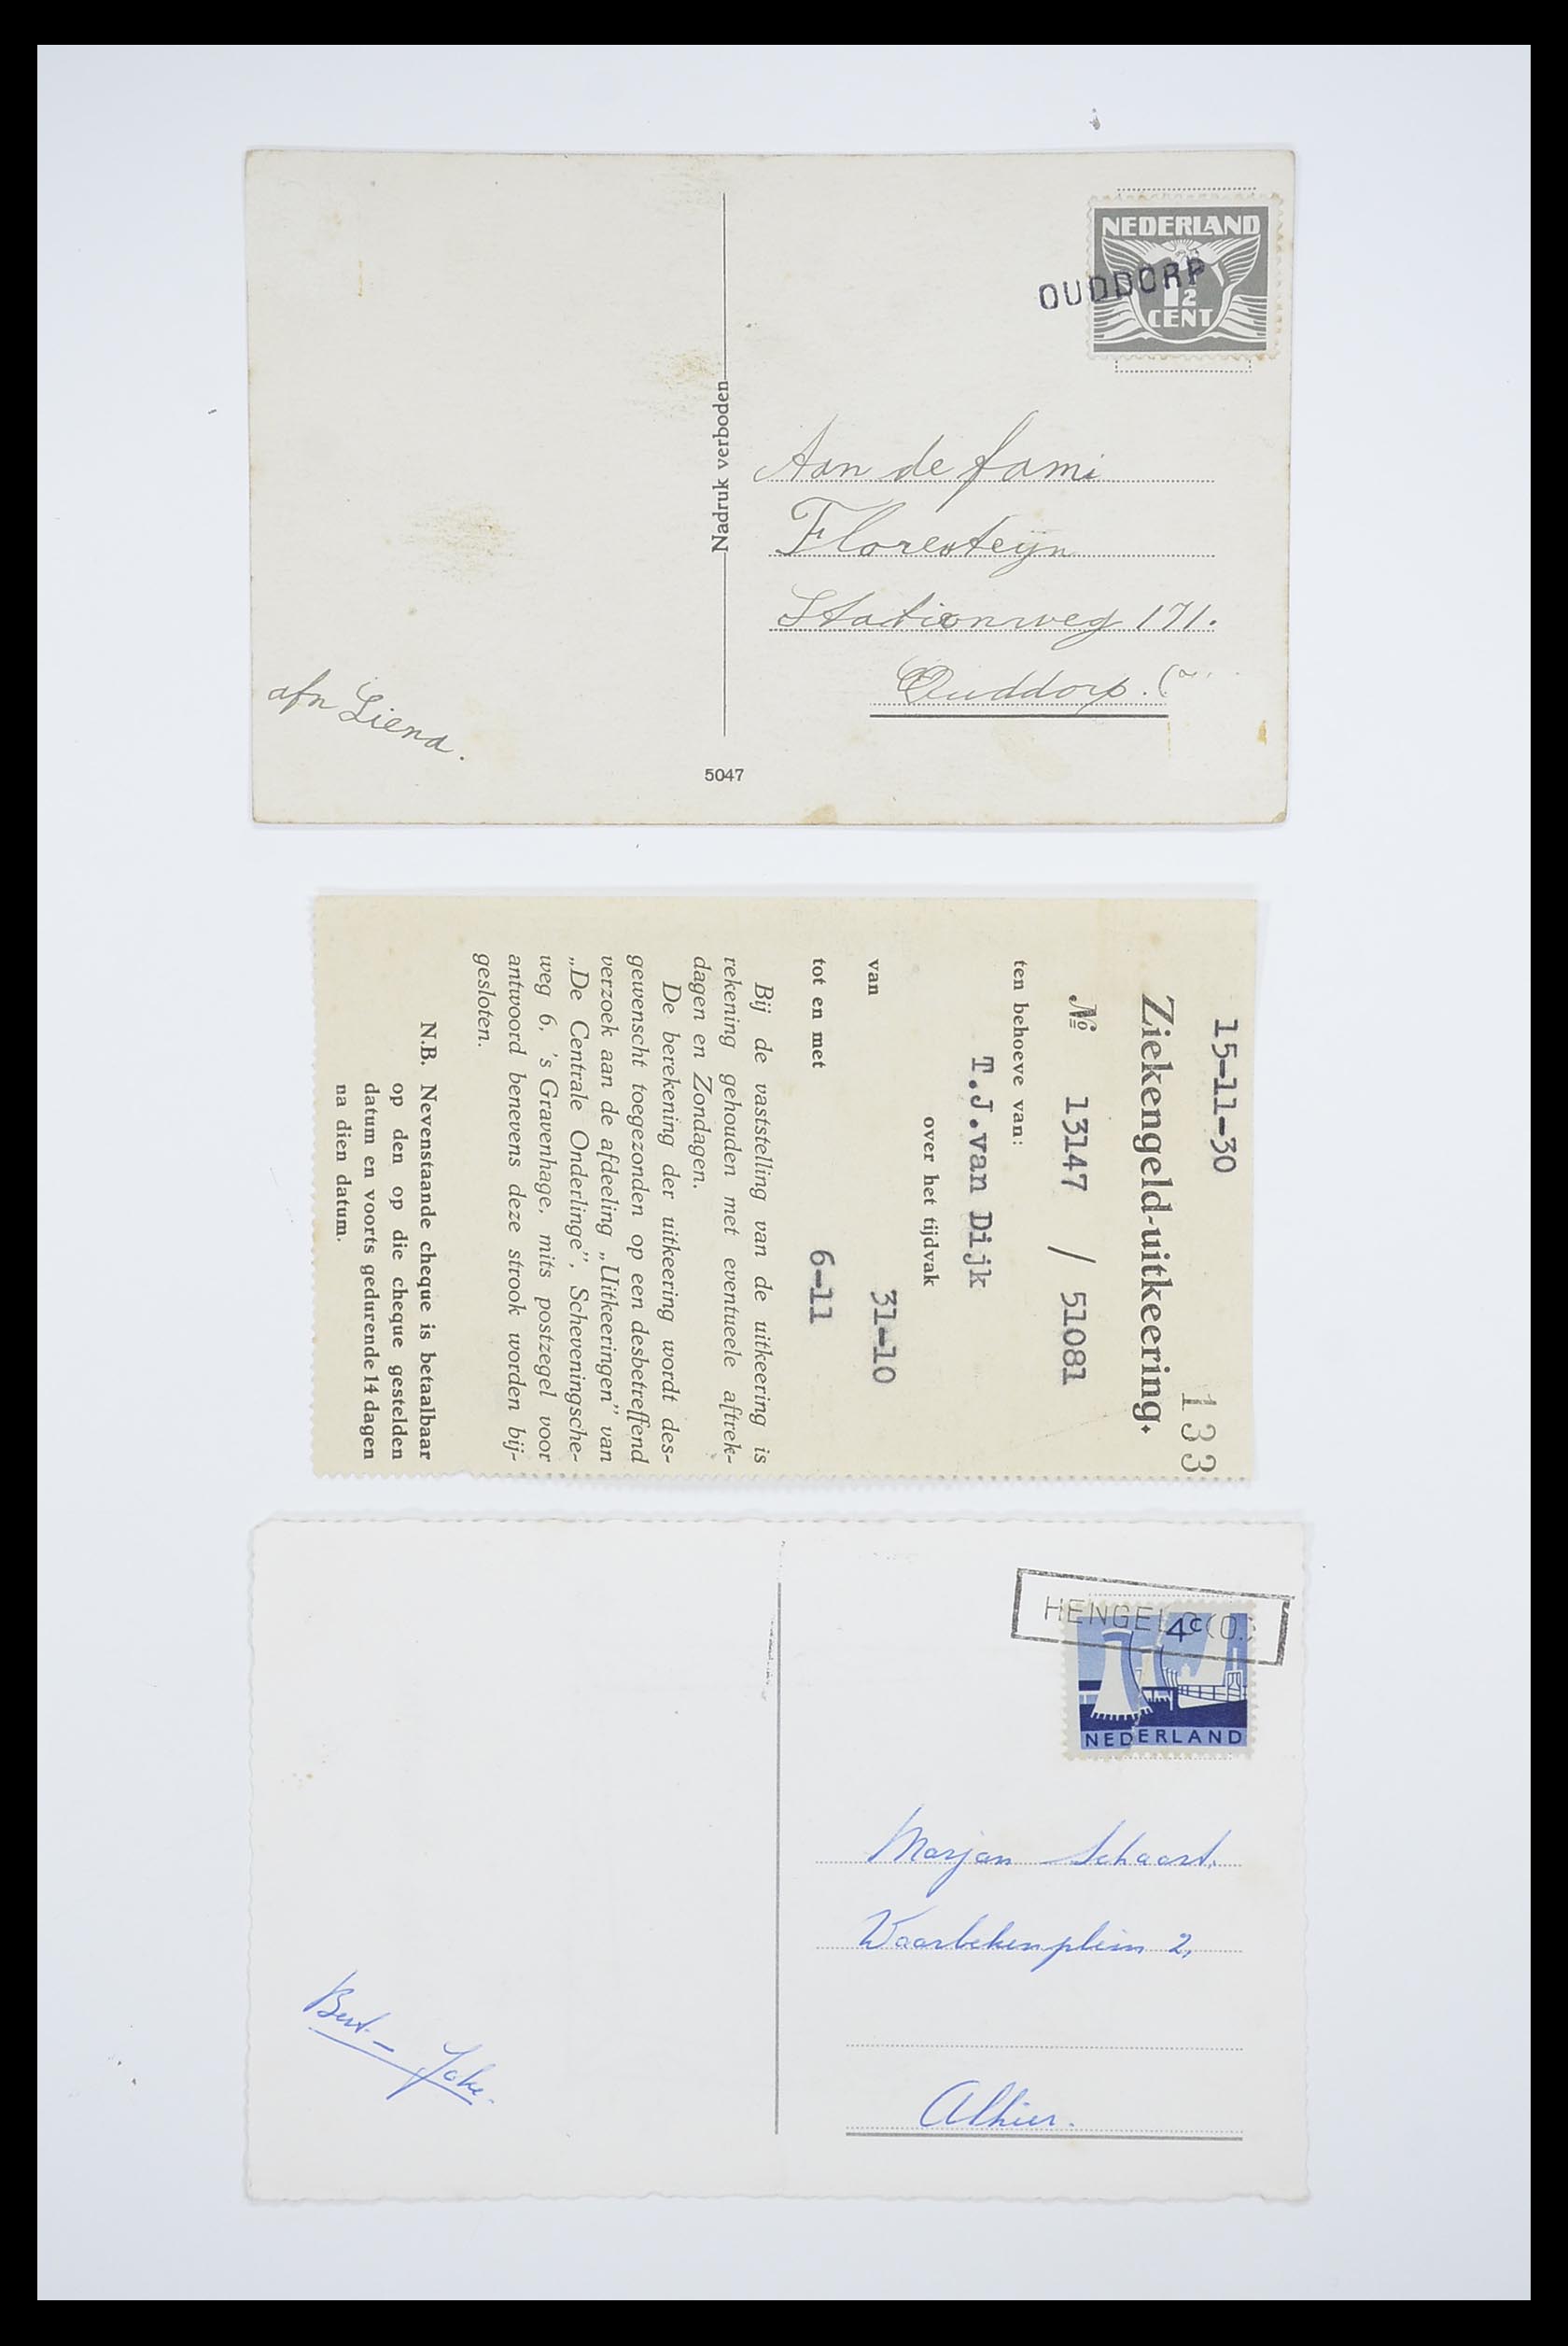 NEDERLAND
1½
CENT
OUDDORP
Nadruk verboden
Aan de fami
Floresteyn
Stationweg 171.
Ouddorp.
afn Liena.
5047
15-11-30
133
Ziekengeld-uitkeering.
№ 13147 / 51081
ten behoeve van:
T.J.van Dijk
over het tijdvak
van 31-10
tot en met 6-11
Bij de vaststelling van de uitkeering is
rekening gehouden met eventueele aftrek-
dagen en Zondagen.
De berekening der uitkeering wordt des-
gewenscht toegezonden op een desbetreffend
verzoek aan de afdeeling „Uitkeeringen” van
„De Centrale Onderlinge”, Scheveningsche-
weg 6, 's Gravenhage, mits postzegel voor
antwoord benevens deze strook worden bij-
gesloten.
N.B. Nevenstaande cheque is betaalbaar
op den op die cheque gestelden
datum en voorts gedurende 14 dagen
na dien datum.
HENGELO (O.)
4c
NEDERLAND
Marjan Schaart.
Waarbekenplein 2,
Alhier.
Bert - Joke.